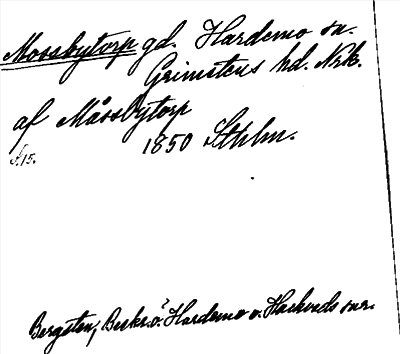 Mossbytorp gd. Hardemo sn.
Grimstens hd. Nrk.
af Måssbytorp
1850 Sthlm.
S. 15.
Bergsten, Beskr. ö. Hardemo o. Hackvads snr.